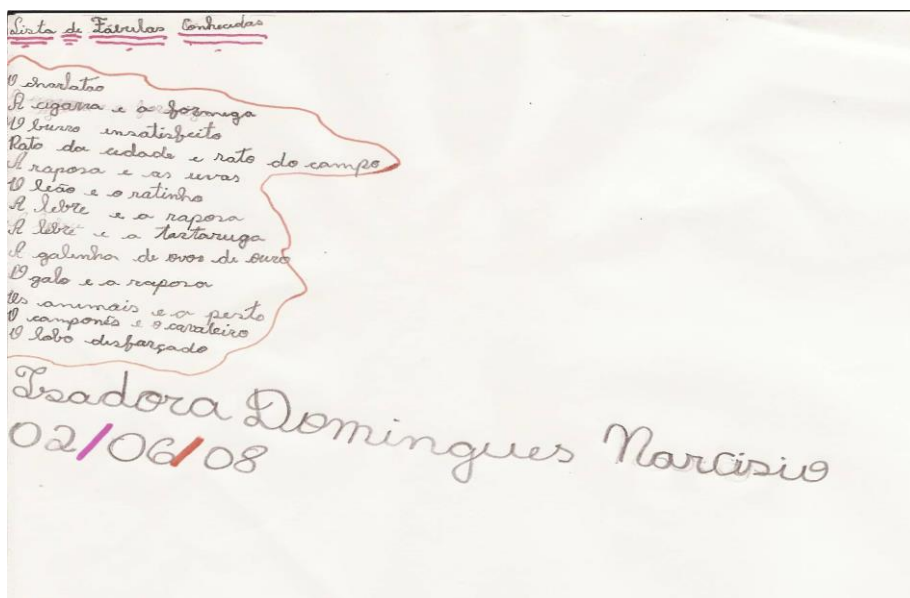 Lista de Fábulas Conhecidas
O charlatão
A cigarra e a formiga
O burro insatisfeito
Rato da cidade e rato do campo
A raposa e as uvas
O leão e o ratinho
A lebre e a raposa
A lebre e a tartaruga
A galinha de ovos de ouro
O galo e a raposa
Os animais e a peste
O camponês e o cavaleiro
O lobo disfarçado
Isadora Domingues Narcisio
02/06/08